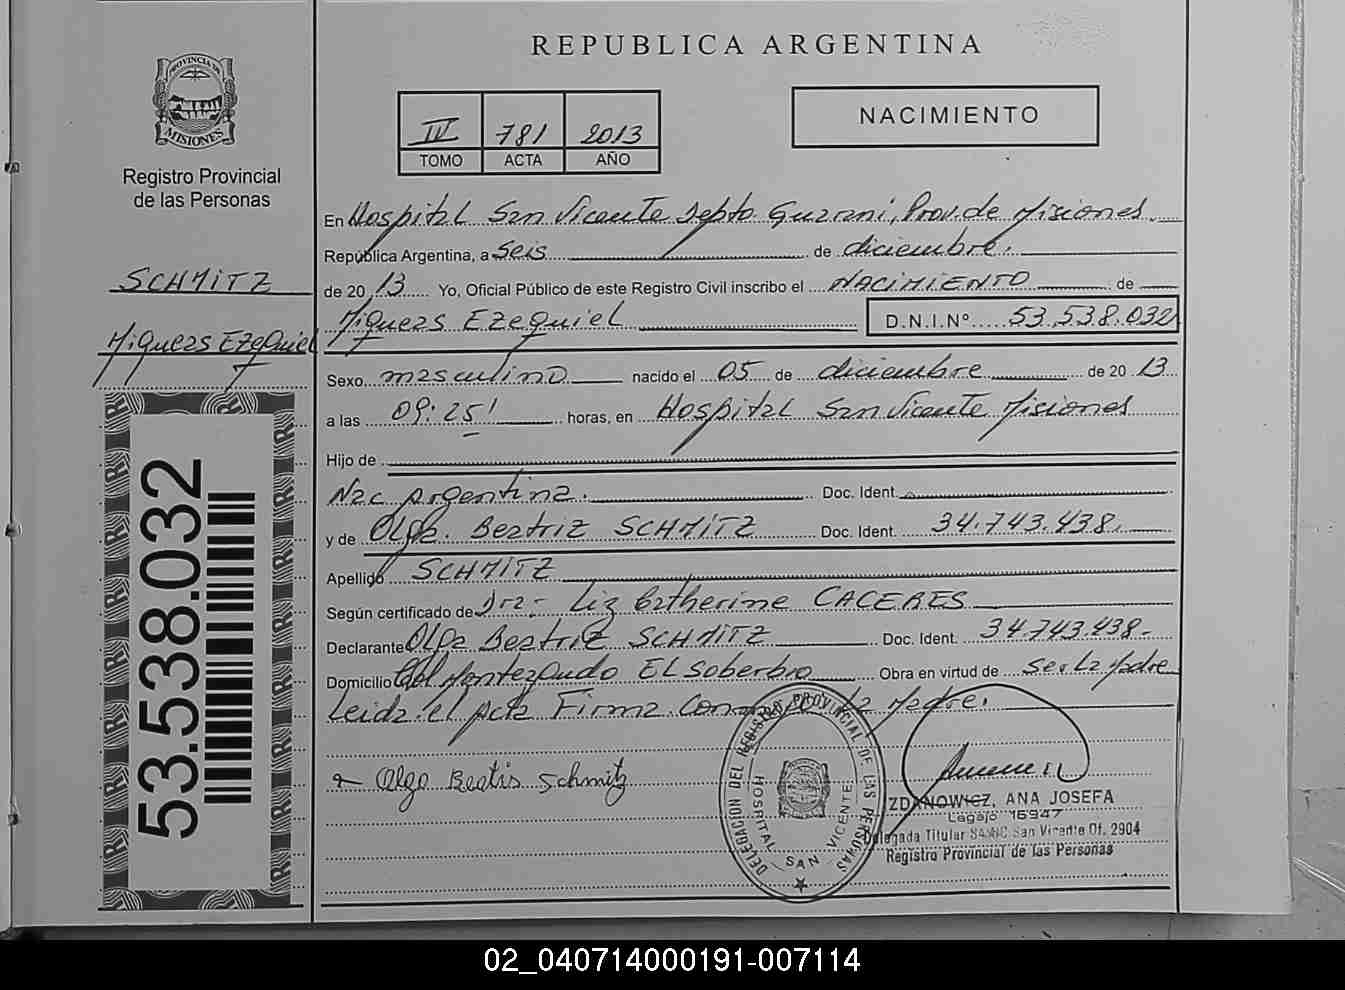 PROVINCIA DE
MISIONES
Registro Provincial
de las Personas
SCHMITZ
Miqueas Ezequiel
53.538.032
REPUBLICA ARGENTINA
IV 781 2013
TOMO ACTA AÑO
NACIMIENTO
En Hospital San Vicente Depto Guarani, Prov. de Misiones.
República Argentina, a Seis de diciembre.
de 20 13 Yo, Oficial Público de este Registro Civil inscribo el NACIMIENTO de
Miqueas Ezequiel D.N.I.Nº 53.538.032
Sexo masculino nacido el 05 de diciembre de 20 13
a las 09:25' horas, en Hospital San Vicente Misiones
Hijo de
Nac Argentina. Doc. Ident.
y de Olga. Beatriz SCHMITZ Doc. Ident. 34.743.438.
Apellido SCHMITZ
Según certificado de Dra- Liz Catherine CACERES
Declarante Olga Beatriz SCHMITZ Doc. Ident. 34.743.438-
Domicilio Monteagudo EL Soberbio Obra en virtud de ser La Madre
Leida el Acta Firma Conmigo La Madre.
Olga Beatis Schmitz
DELEGACION DEL REGISTRO PROVINCIAL DE LAS PERSONAS
HOSPITAL SAN VICENTE
ZDANOWICZ, ANA JOSEFA
Legajo 16947
Delegada Titular San Vicente Of. 2904
Registro Provincial de las Personas
02_040714000191-007114